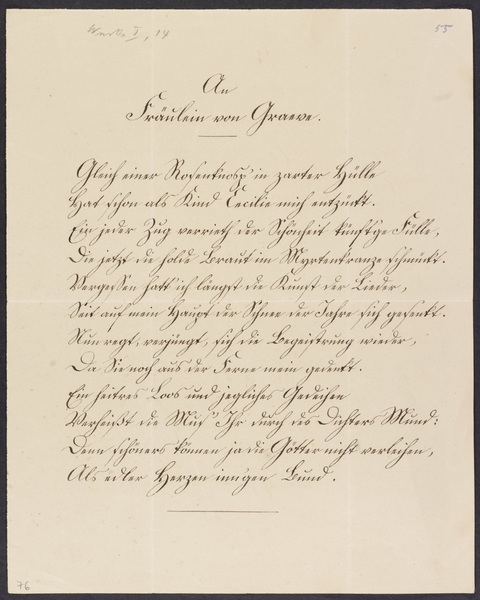 Werke I, 14
55
An
Fräulein von Graeve.
Gleich einer Rosenknosp' in zarter Hülle
Hat schon als Kind Cecilie mich entzückt.
Ein jeder Zug verrieth der Schönheit künft'ge Fülle,
Die jetzt die holde Braut im Myrtenkranze schmückt.
Vergessen hatt' ich längst die Kunst der Lieder,
Seit auf mein Haupt der Schnee der Jahre sich gesenkt.
Nun regt, verjüngt, sich die Begeistrung wieder,
Da Sie noch aus der Ferne mein gedenkt.
Ein heitres Loos und jegliches Gedeihen
Verheißt die Mus' Ihr durch des Dichters Mund:
Denn schöners können ja die Götter nicht verleihen,
Als edler Herzen innigen Bund.
76